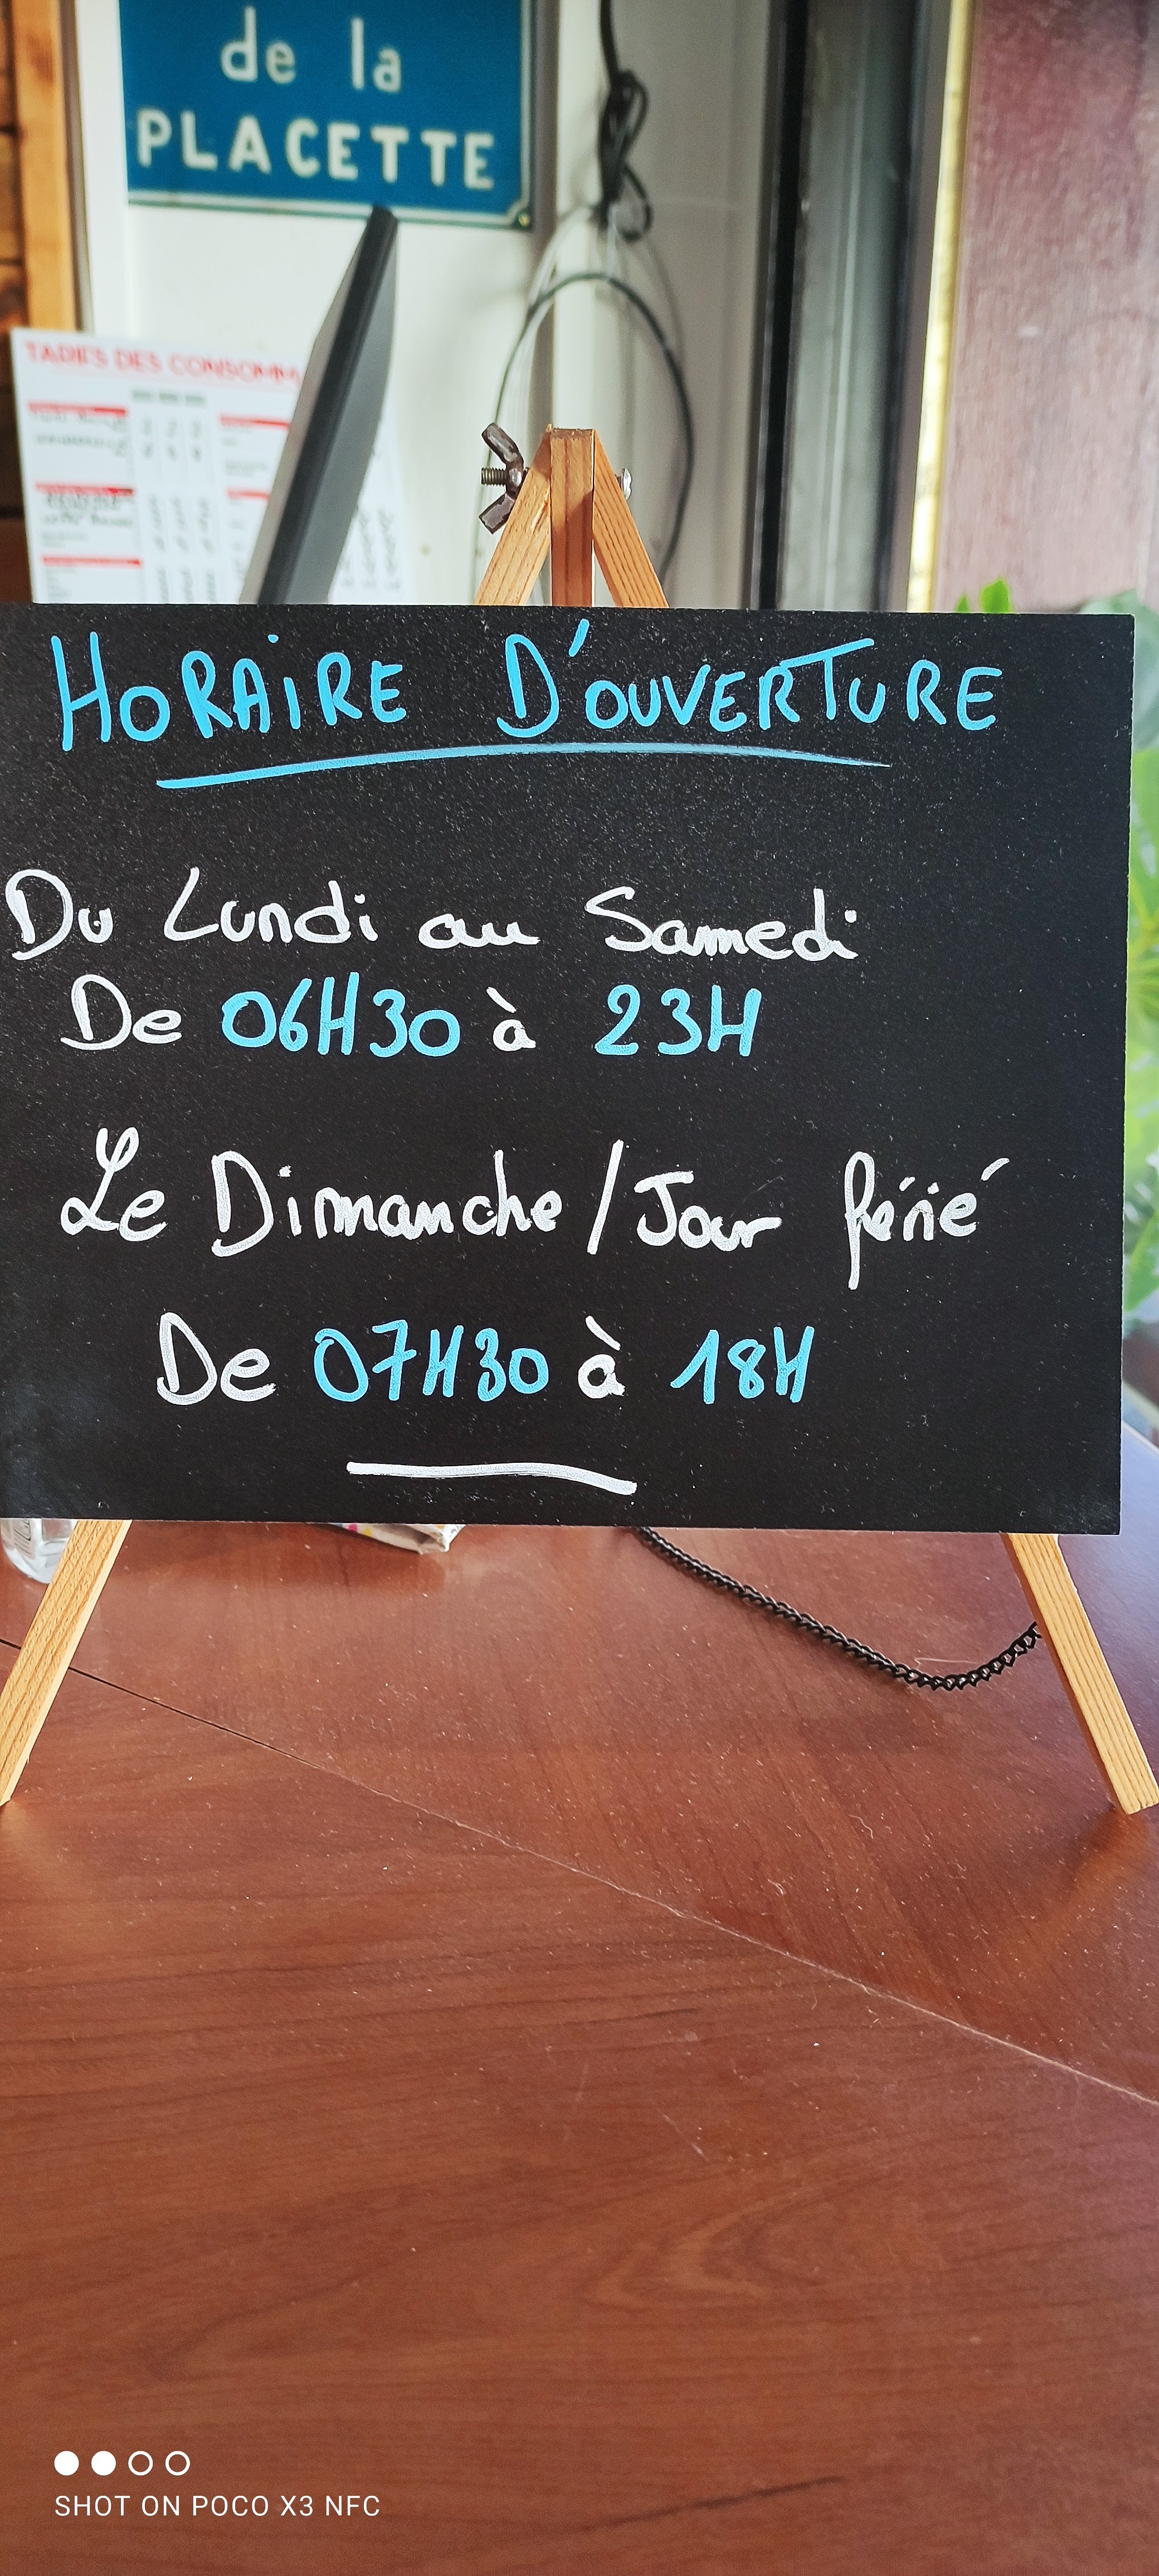 de la
PLACETTE
TARIFS DES CONSOMM
HORAIRE D'OUVERTURE
Du Lundi au Samedi
De 06H30 à 23H
Le Dimanche/Jour férié
De 07H30 à 18H
SHOT ON POCO X3 NFC